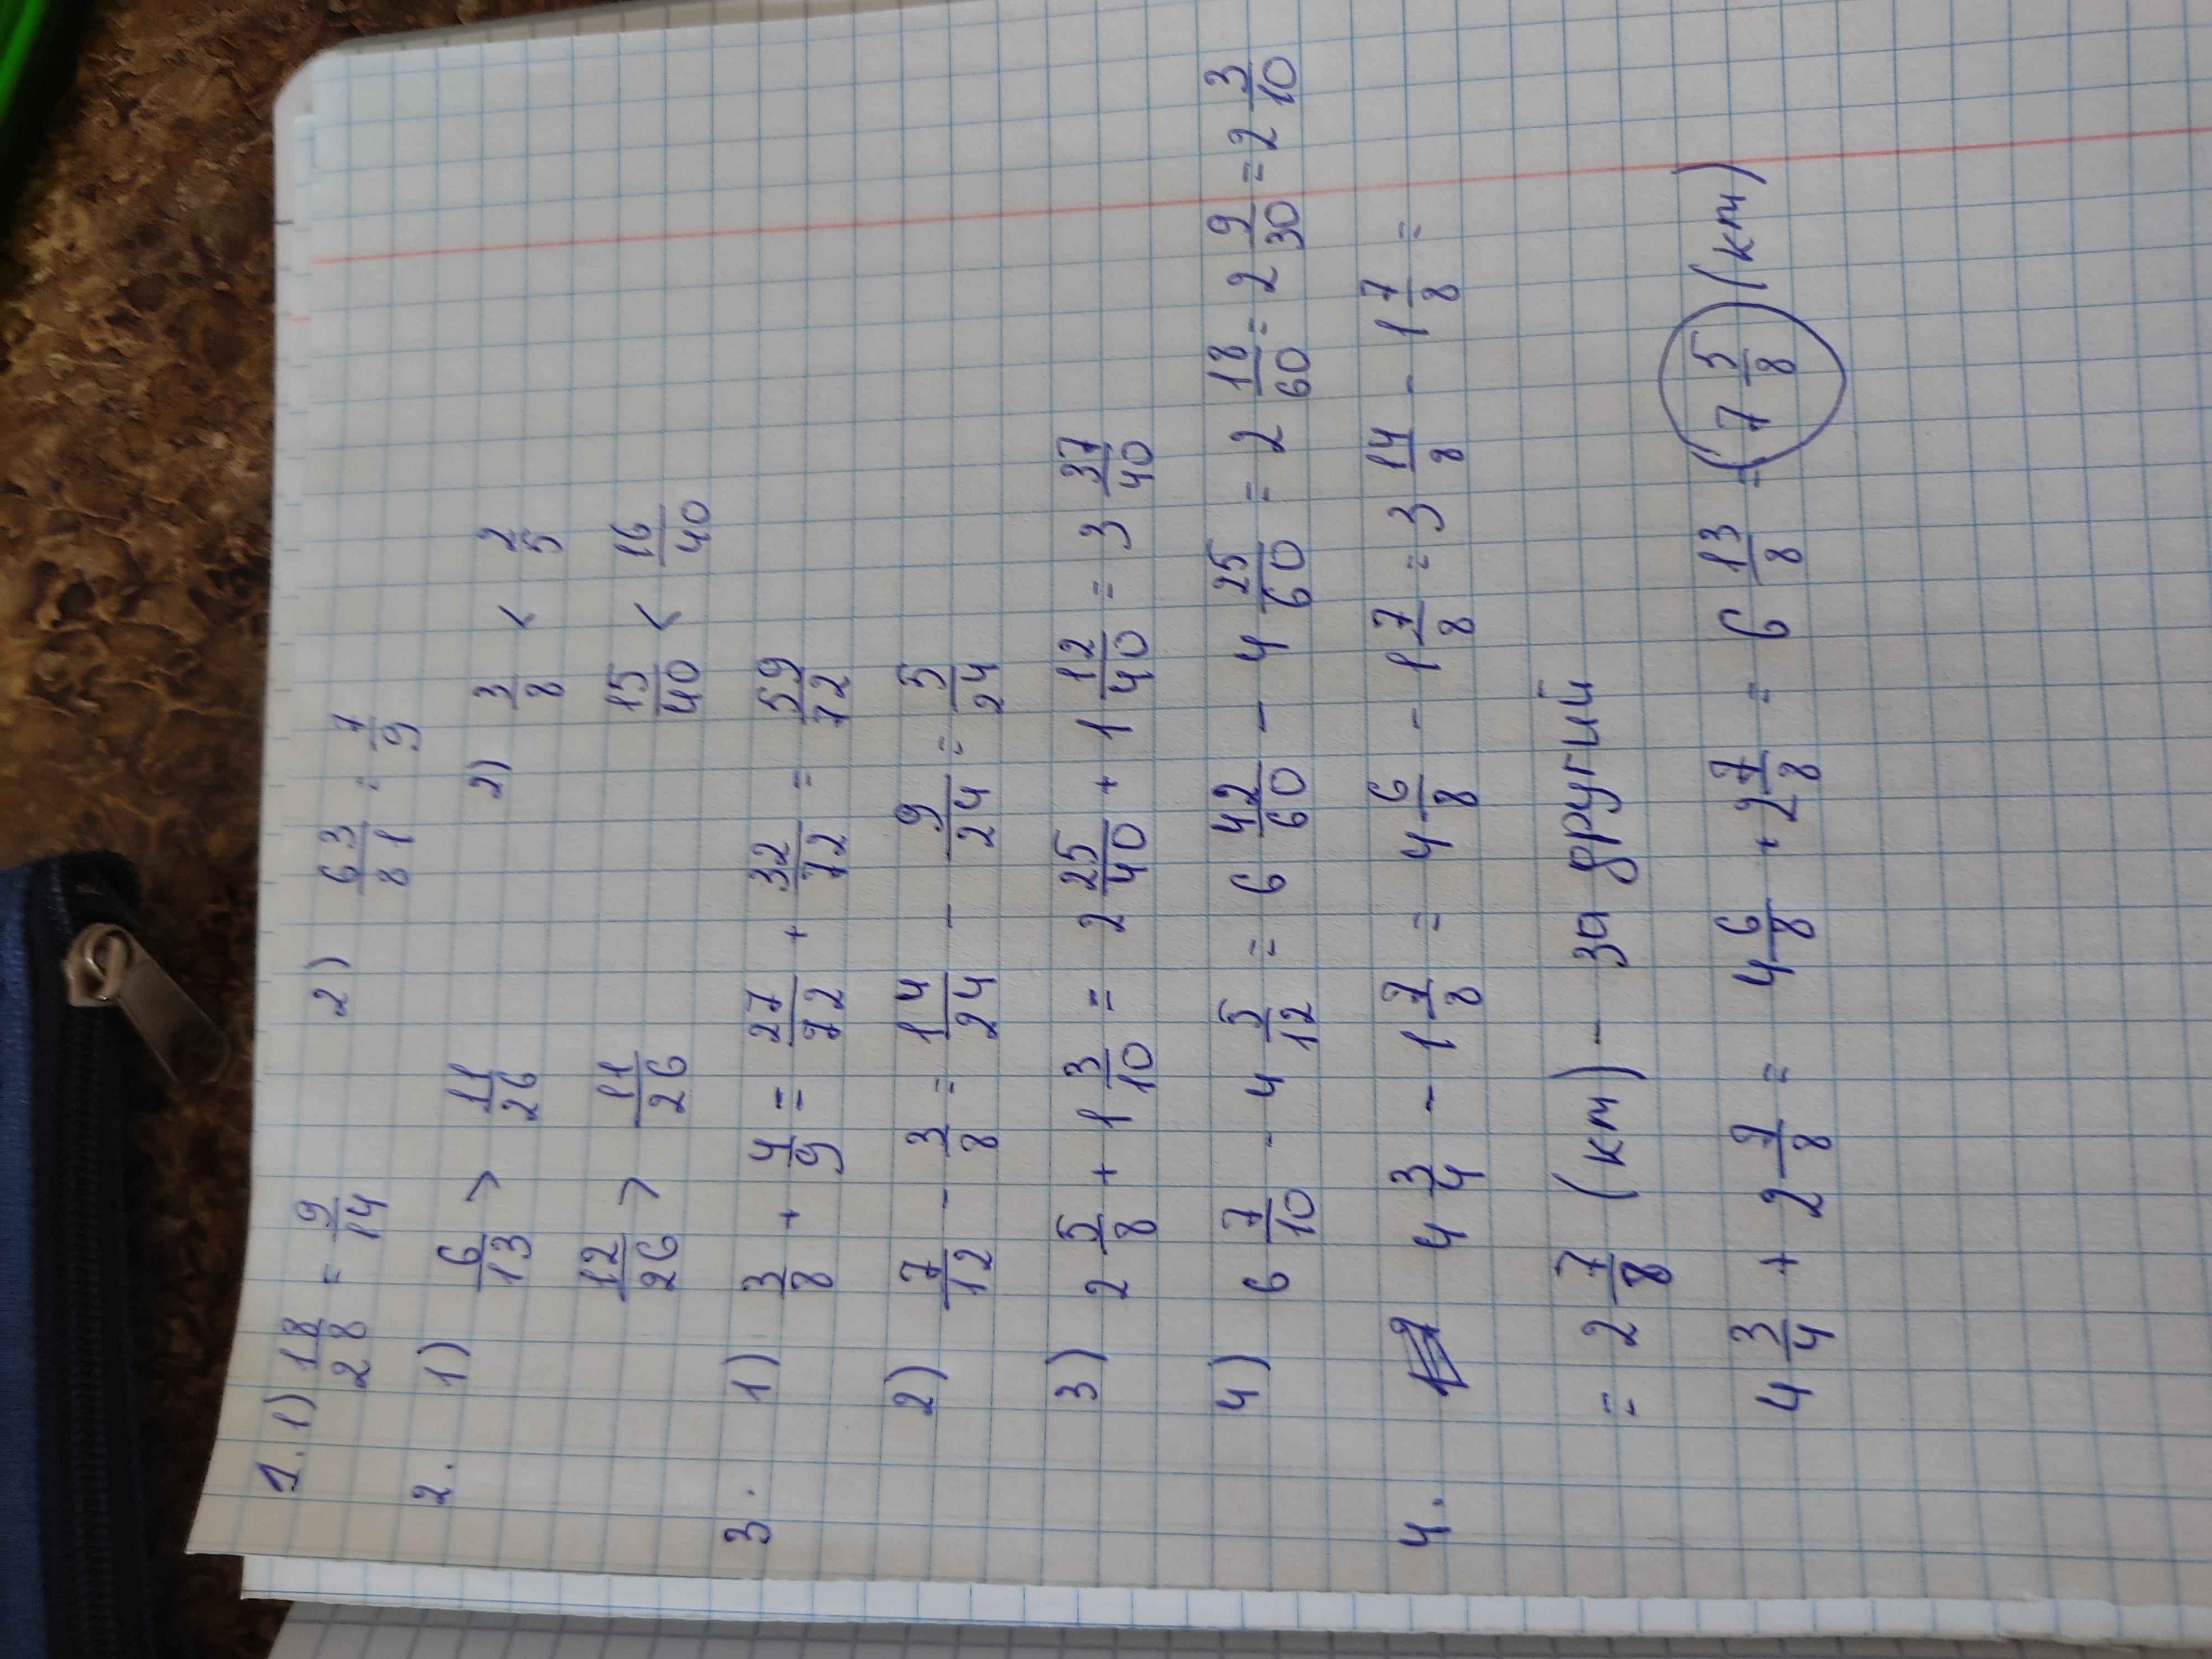 1. 1) 18/28 = 9/14 2) 63/81 = 7/9
2. 1) 6/13 > 11/26 2) 3/8 < 2/5
12/26 > 11/26 15/40 < 16/40
3. 1) 3/8 + 4/9 = 27/72 + 32/72 = 59/72
2) 7/12 - 3/8 = 14/24 - 9/24 = 5/24
3) 2 5/8 + 1 3/10 = 2 25/40 + 1 12/40 = 3 37/40
4) 6 7/10 - 4 5/12 = 6 42/60 - 4 25/60 = 2 18/60 = 2 9/30 = 2 3/10
4. 4 3/4 - 1 7/8 = 4 6/8 - 1 7/8 = 3 14/8 - 1 7/8 =
= 2 7/8 (км) - за другий
4 3/4 + 2 7/8 = 4 6/8 + 2 7/8 = 6 13/8 = 7 5/8 (км)